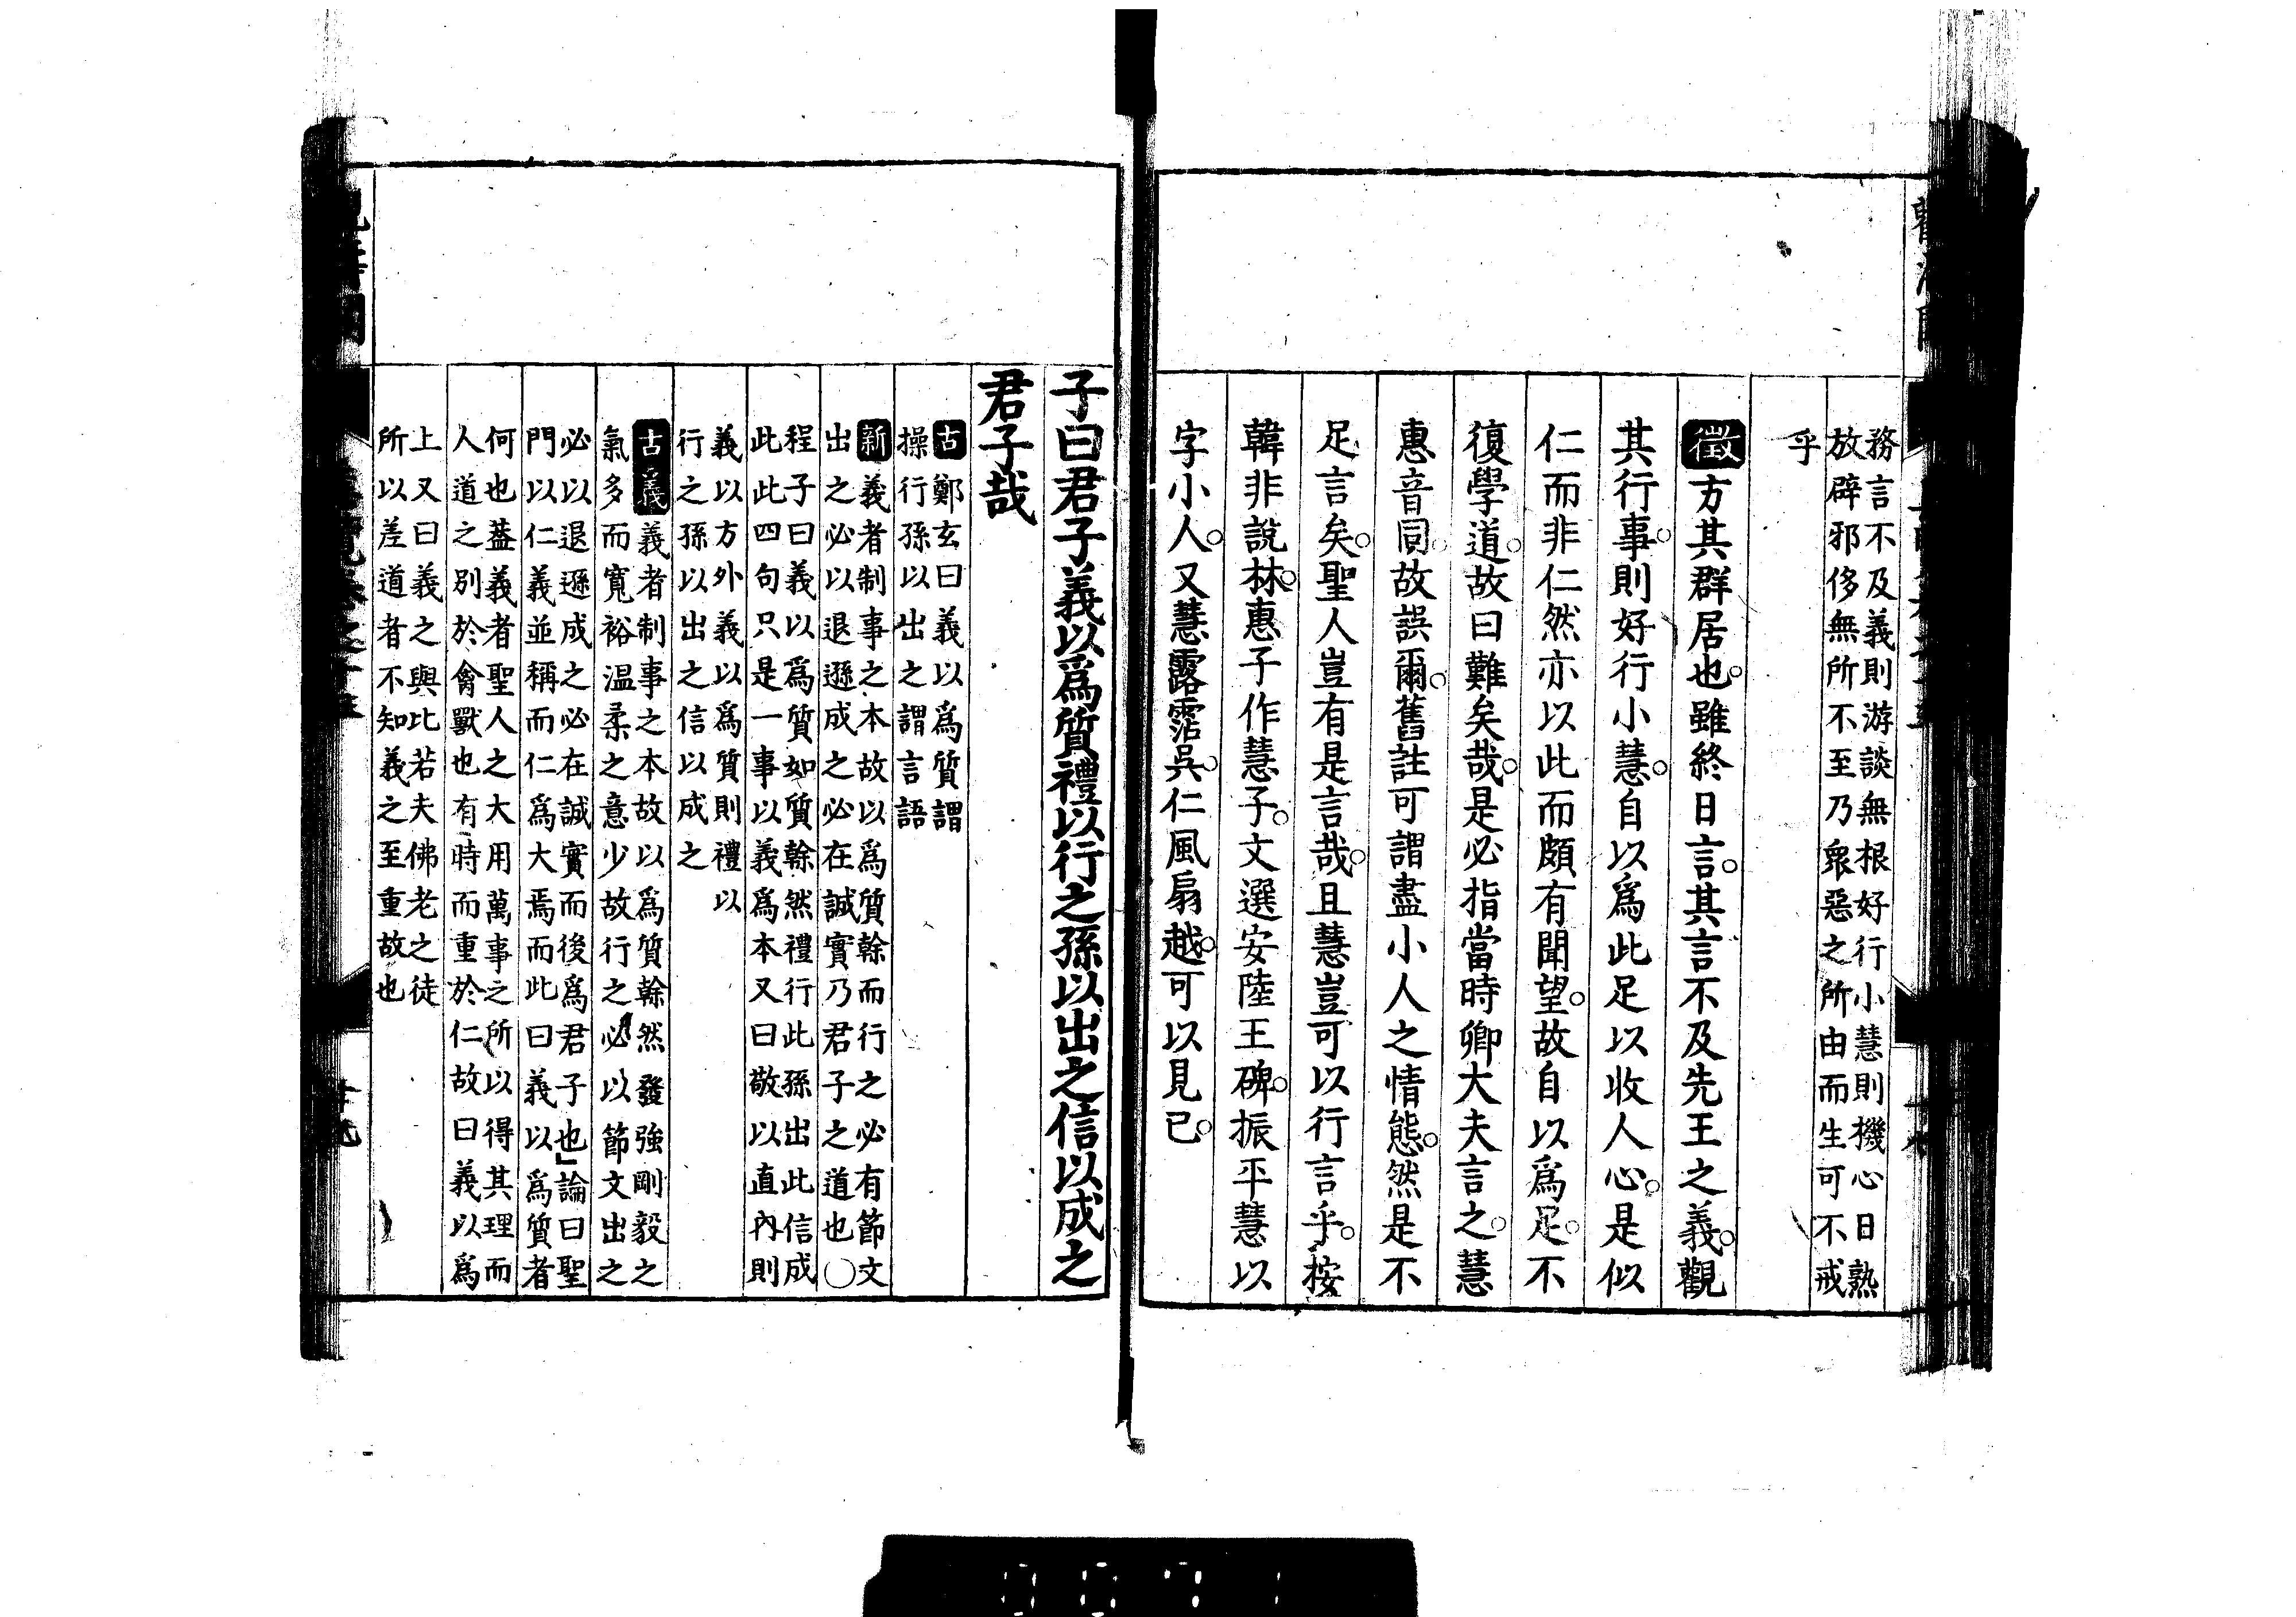 務言不及義則游談無根好行小慧則機心日熟
放辟邪侈無所不至乃衆惡之所由而生可不戒
乎
徵方其群居也。雖終日言。其言不及先王之義。觀
其行事。則好行小慧。自以爲此足以收人心。是似
仁而非仁然亦以此而頗有聞望。故自以爲足。不
復學道。故曰難矣哉。是必指當時卿大夫言之。慧
惠音同。故誤爾。舊註可謂盡小人之情態。然是不
足言矣。聖人豈有是言哉。且慧豈可以行言乎。按
韓非說林。惠子作慧子。文選安陸王碑。振平慧以
字小人。又慧露霑吳。仁風扇越。可以見已。
子曰君子義以爲質禮以行之孫以出之信以成之
君子哉
古鄭玄曰義以爲質謂
操行孫以出之謂言語
新義者制事之本故以爲質榦而行之必有節文
出之必以退遜成之必在誠實乃君子之道也○
程子曰義以爲質如質榦然禮行此孫出此信成
此此四句只是一事以義爲本又曰敬以直內則
義以方外義以爲質則禮以
行之孫以出之信以成之
古義義者制事之本故以爲質榦然發強剛毅之
氣多而寬裕温柔之意少故行之必以節文出之
必以退遜成之必在誠實而後爲君子也」論曰聖
門以仁義並稱而仁爲大焉而此曰義以爲質者
何也葢義者聖人之大用萬事之所以得其理而
人道之別於禽獸也有時而重於仁故曰義以爲
上又曰義之與比若夫佛老之徒
所以差道者不知義之至重故也
0071